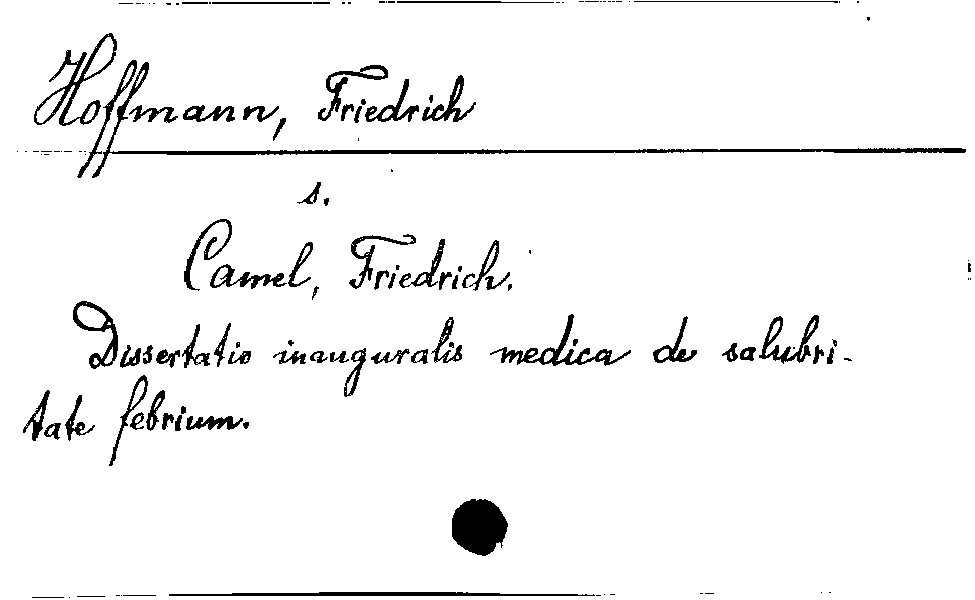 Hoffmann, Friedrich
s.
Camel, Friedrich.
Dissertatio inauguralis medica de salubri-
tate febrium.